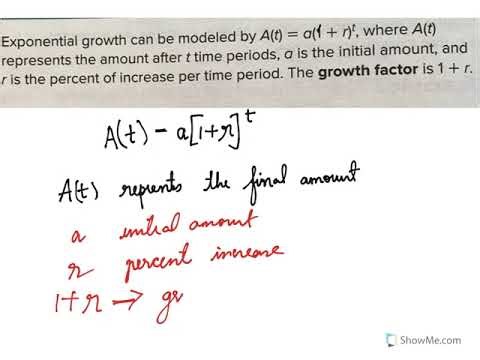 Exponential growth can be modeled by A(t) = a(1 + r)ᵗ, where A(t)
represents the amount after t time periods, a is the initial amount, and
r is the percent of increase per time period. The growth factor is 1 + r.
A(t) - a[1+r]ᵗ
A(t) reprents the final amount
a initial amount
r percent increase
1+r → gr
ShowMe.com